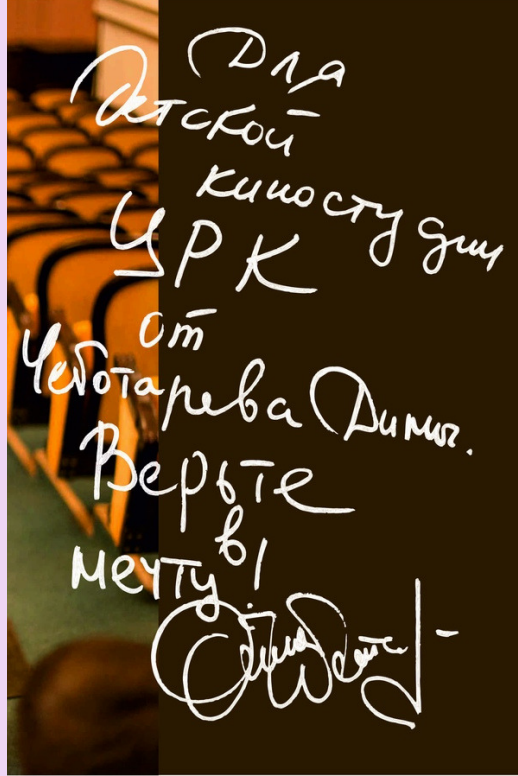 Для
Детской
киностудии
ЦРК
от
Чеботарева Димы.
Верьте
в
мечту!